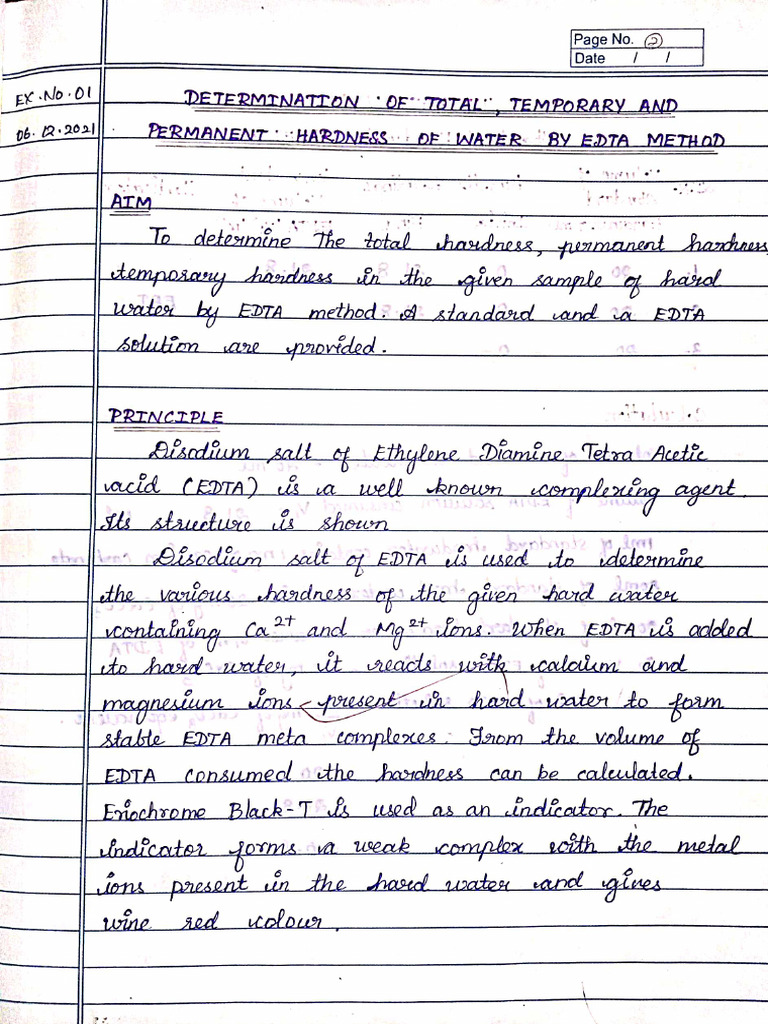 Page No. 2
Date / /
EX.NO.01
06.12.2021
DETERMINATION OF TOTAL, TEMPORARY AND
PERMANENT HARDNESS OF WATER BY EDTA METHOD
AIM
To determine The total hardness, permanent hardness,
temporary hardness in the given sample of hard
water by EDTA method. A standard and a EDTA
solution are provided.
PRINCIPLE
Disodium salt of Ethylene Diamine Tetra Acetic
acid (EDTA) is a well known complexing agent.
Its structure is shown
Disodium salt of EDTA is used to determine
the various hardness of the given hard water
containing Ca²⁺ and Mg²⁺ ions. When EDTA is added
to hard water, it reacts with calcium and
magnesium ions present in hard water to form
stable EDTA meta complexes. From the volume of
EDTA consumed the hardness can be calculated.
Eriochrome Black-T is used as an indicator. The
indicator forms a weak complex with the metal
ions present in the hard water and gives
wine red colour.